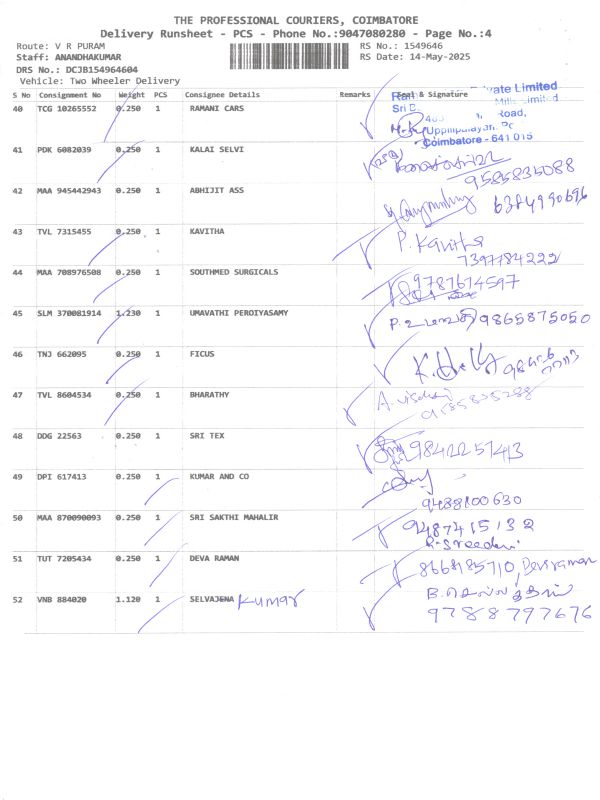 THE PROFESSIONAL COURIERS, COIMBATORE
Delivery Runsheet - PCS - Phone No.:9047080280 - Page No.:4
Route: V R PURAM RS No.: 1549646
Staff: ANANDHAKUMAR RS Date: 14-May-2025
DRS No.: DCJB154964604
Vehicle: Two Wheeler Delivery
S No Consignment No Weight PCS Consignee Details Remarks Seal & Signature
40 TCG 10265552 0.250 1 RAMANI CARS
Private Limited
Sri Mills Limited
Road,
Uppilipalayam
Coimbatore - 641 015
41 PDK 6082039 0.250 1 KALAI SELVI
9585835088
42 MAA 945442943 0.250 1 ABHIJIT ASS
6384990696
43 TVL 7315455 0.250 1 KAVITHA P. Kavitha
7397784222
44 MAA 708976508 0.250 1 SOUTHMED SURGICALS 9787674597
45 SLM 370081914 1.230 1 UMAVATHI PEROIYASAMY 9865875050
46 TNJ 662095 0.250 1 FICUS
47 TVL 8604534 0.250 1 BHARATHY
48 DDG 22563 0.250 1 SRI TEX 9842257413
49 DPI 617413 0.250 1 KUMAR AND CO
9488100630
50 MAA 870090093 0.250 1 SRI SAKTHI MAHALIR 9487415132
R. Sreedevi
51 TUT 7205434 0.250 1 DEVA RAMAN 8668185710, Devaraman
52 VNB 884020 1.120 1 SELVAJENA Kumar B. செல்வகுமார்
9788797676